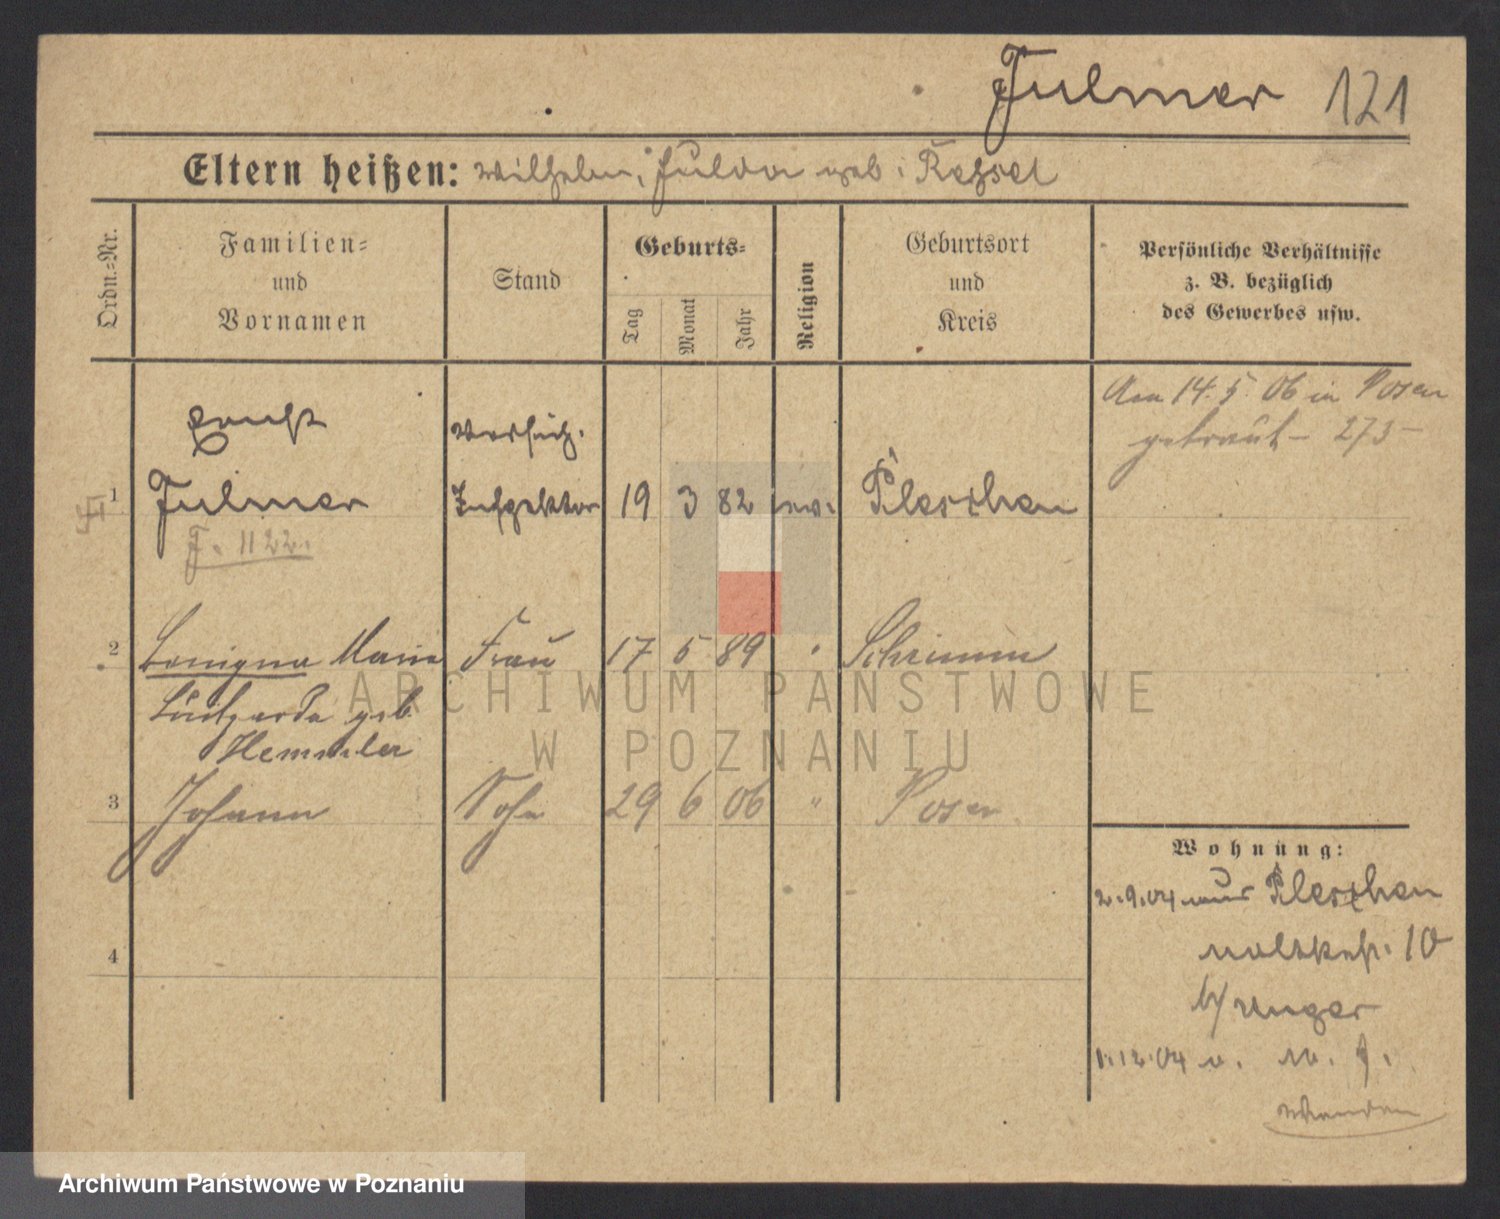 Fulmer 121
Eltern heißen: Wilhelm, Hulda geb. Kessel
Ordn.=Nr.
Familien=
und
Vornamen
Stand
Geburts=
Tag
Monat
Jahr
Religion
Geburtsort
und
Kreis
Persönliche Verhältnisse
z. B. bezüglich
des Gewerbes usw.
Am 14. 5. 06 in Posen
getraut – 273 –
Ernst Versich.
1 Fulmer Inspektor 19 3 82 ev. Pleschen
F. 1122.
2 Benigna Maria Frau 17 5 89 " Schrimm
Luitgarda geb.
Hemmler
3 Johann Sohn 29 6 06 " Posen
Wohnung:
2.9.04 aus Pleschen
Moltkestr. 10
b/ Unger
4
1.12.04
ARCHIWUM PAŃSTWOWE
W POZNANIU
Archiwum Państwowe w Poznaniu